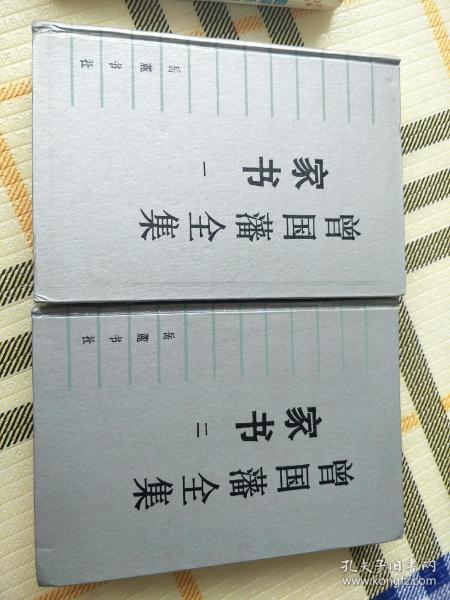 曾国藩全集
家书 一
岳麓书社
曾国藩全集
家书 二
岳麓书社
孔夫子旧书网
www.kongfz.com